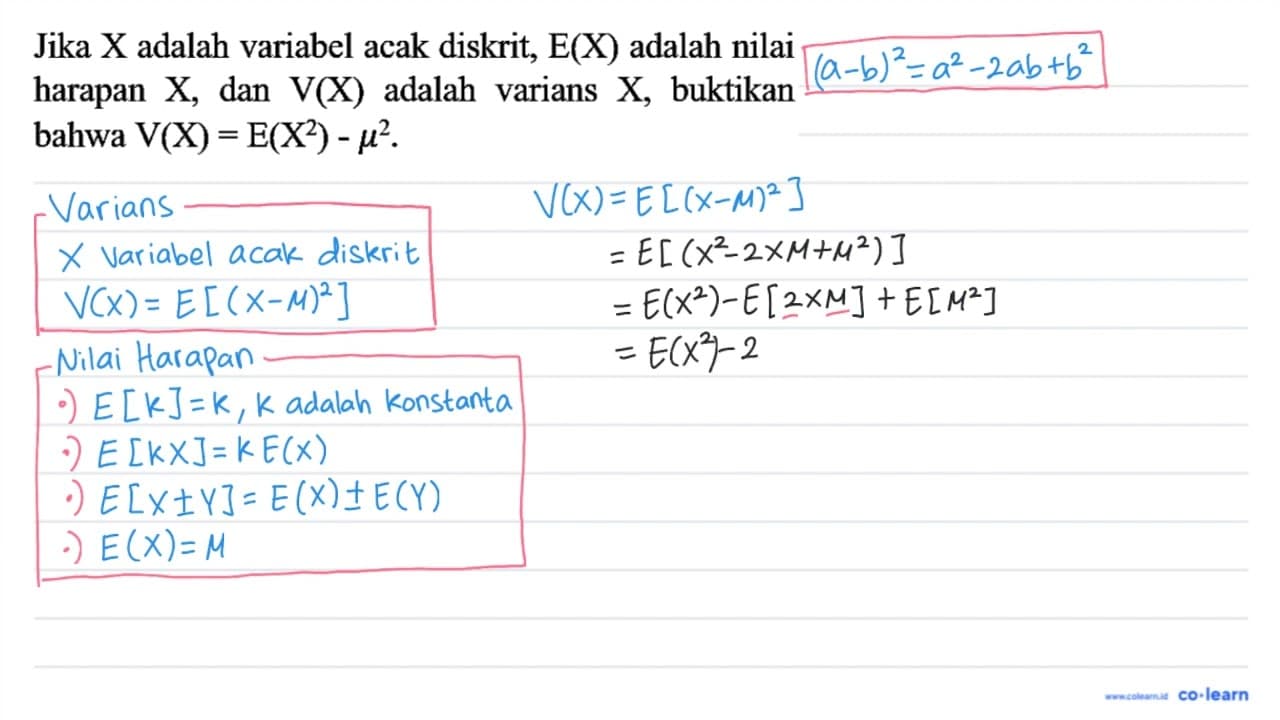 Jika X adalah variabel acak diskrit, E(X) adalah nilai
harapan X, dan V(X) adalah varians X, buktikan
bahwa V(X) = E(X²) - μ².
(a-b)²=a²-2ab+b²
Varians
X variabel acak diskrit
V(X)= E[(X-M)²]
Nilai Harapan
•) E[K]=K, K adalah konstanta
•) E[KX]=K E(X)
•) E[X±Y]= E(X)±E(Y)
•) E(X)=M
V(X)=E[(X-M)²]
= E[(X²-2XM+M²)]
= E(X²)-E[2XM]+E[M²]
= E(X²)-2
www.colearn.id co·learn